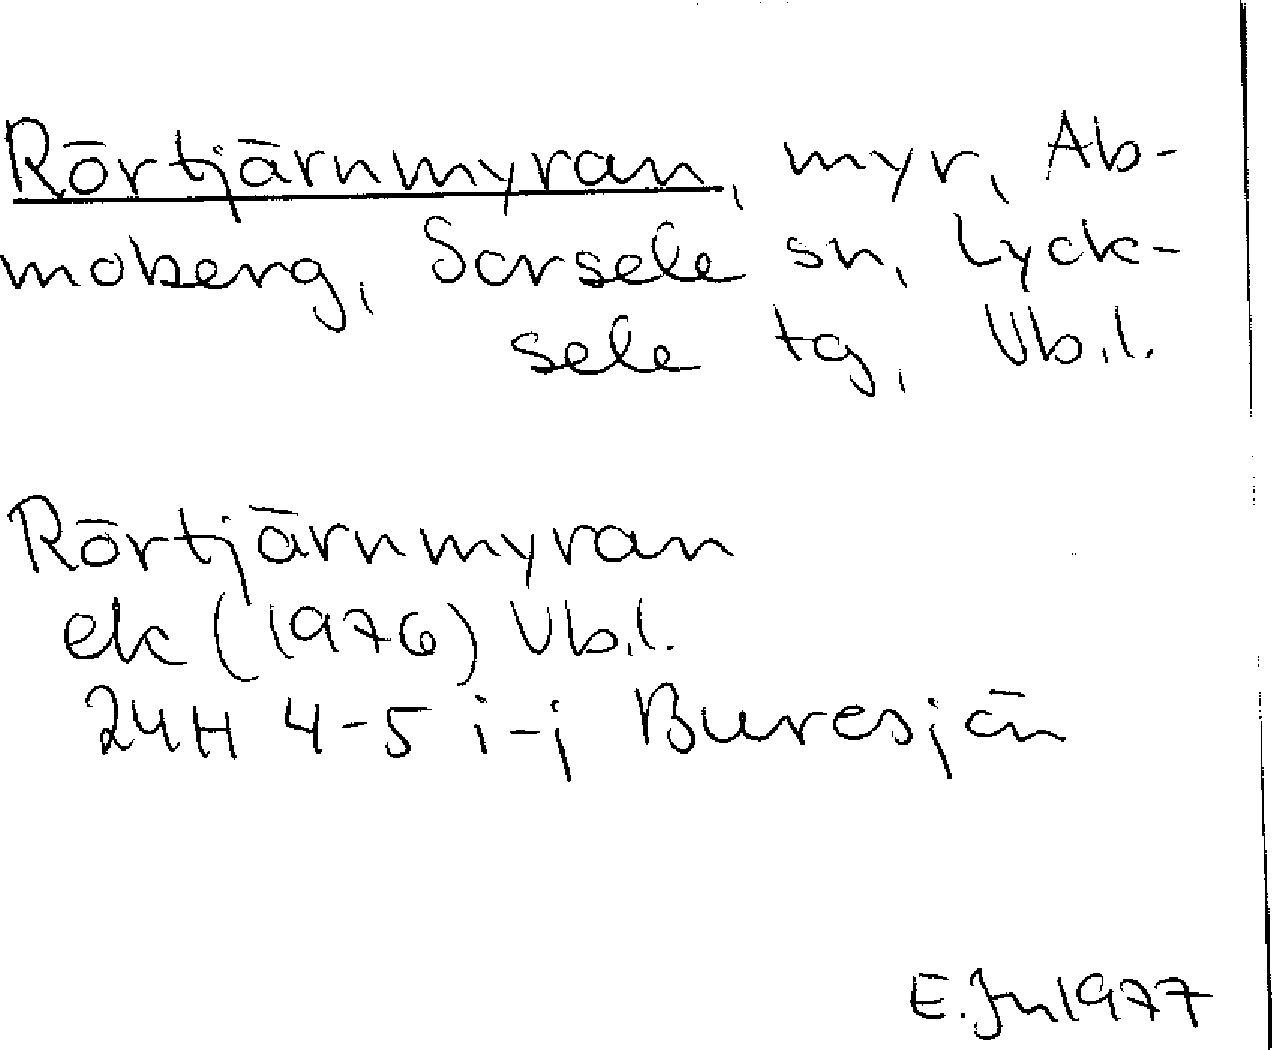 Rörtjärnmyran, myr, Ab-
moberg, Sorsele sn, Lyck-
sele tg, Vb.l.
Rörtjärnmyran
ek (1976) Vb.l.
24H 4-5 i-j Buresjön
E.Jn 1977